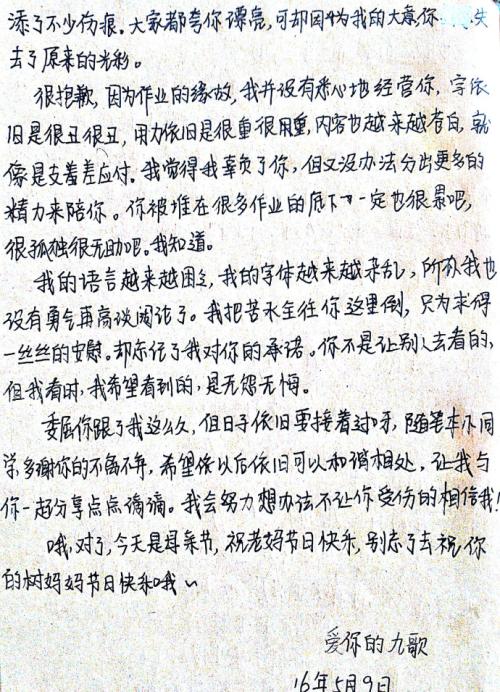 添了不少伤痕。大家都夸你漂亮，可却因为我的大意你失
去了原来的光彩。
很抱歉，因为作业的缘故，我并没有悉心地经营你，字依
旧是很丑很丑，用力依旧是很重很用重，内容也越来越苍白，就
像是支差差应付。我觉得我辜负了你，但又没办法分出更多的
精力来陪你。你被堆在很多作业的底下一定也很累吧，
很孤独很无助吧。我知道。
我的语言越来越困乏，我的字体越来越杂乱，所以我也
没有勇气再高谈阔论了。我把苦水全往你这里倒，只为求得
一丝丝的安慰。却忘记了我对你的承诺。你不是让别人去看的，
但我看时，我希望看到的，是无怨无悔。
委屈你跟了我这么久，但日子依旧要接着过呀，随笔本同
学，多谢你的不离不弃，希望依以后依旧可以和谐相处，让我与
你一起分享点点滴滴。我会努力想办法不让你受伤的相信我！
哦，对了，今天是母亲节，祝老妈节日快乐，别忘了去祝你
的树妈妈节日快乐哦～
爱你的九歌
16年5月9日